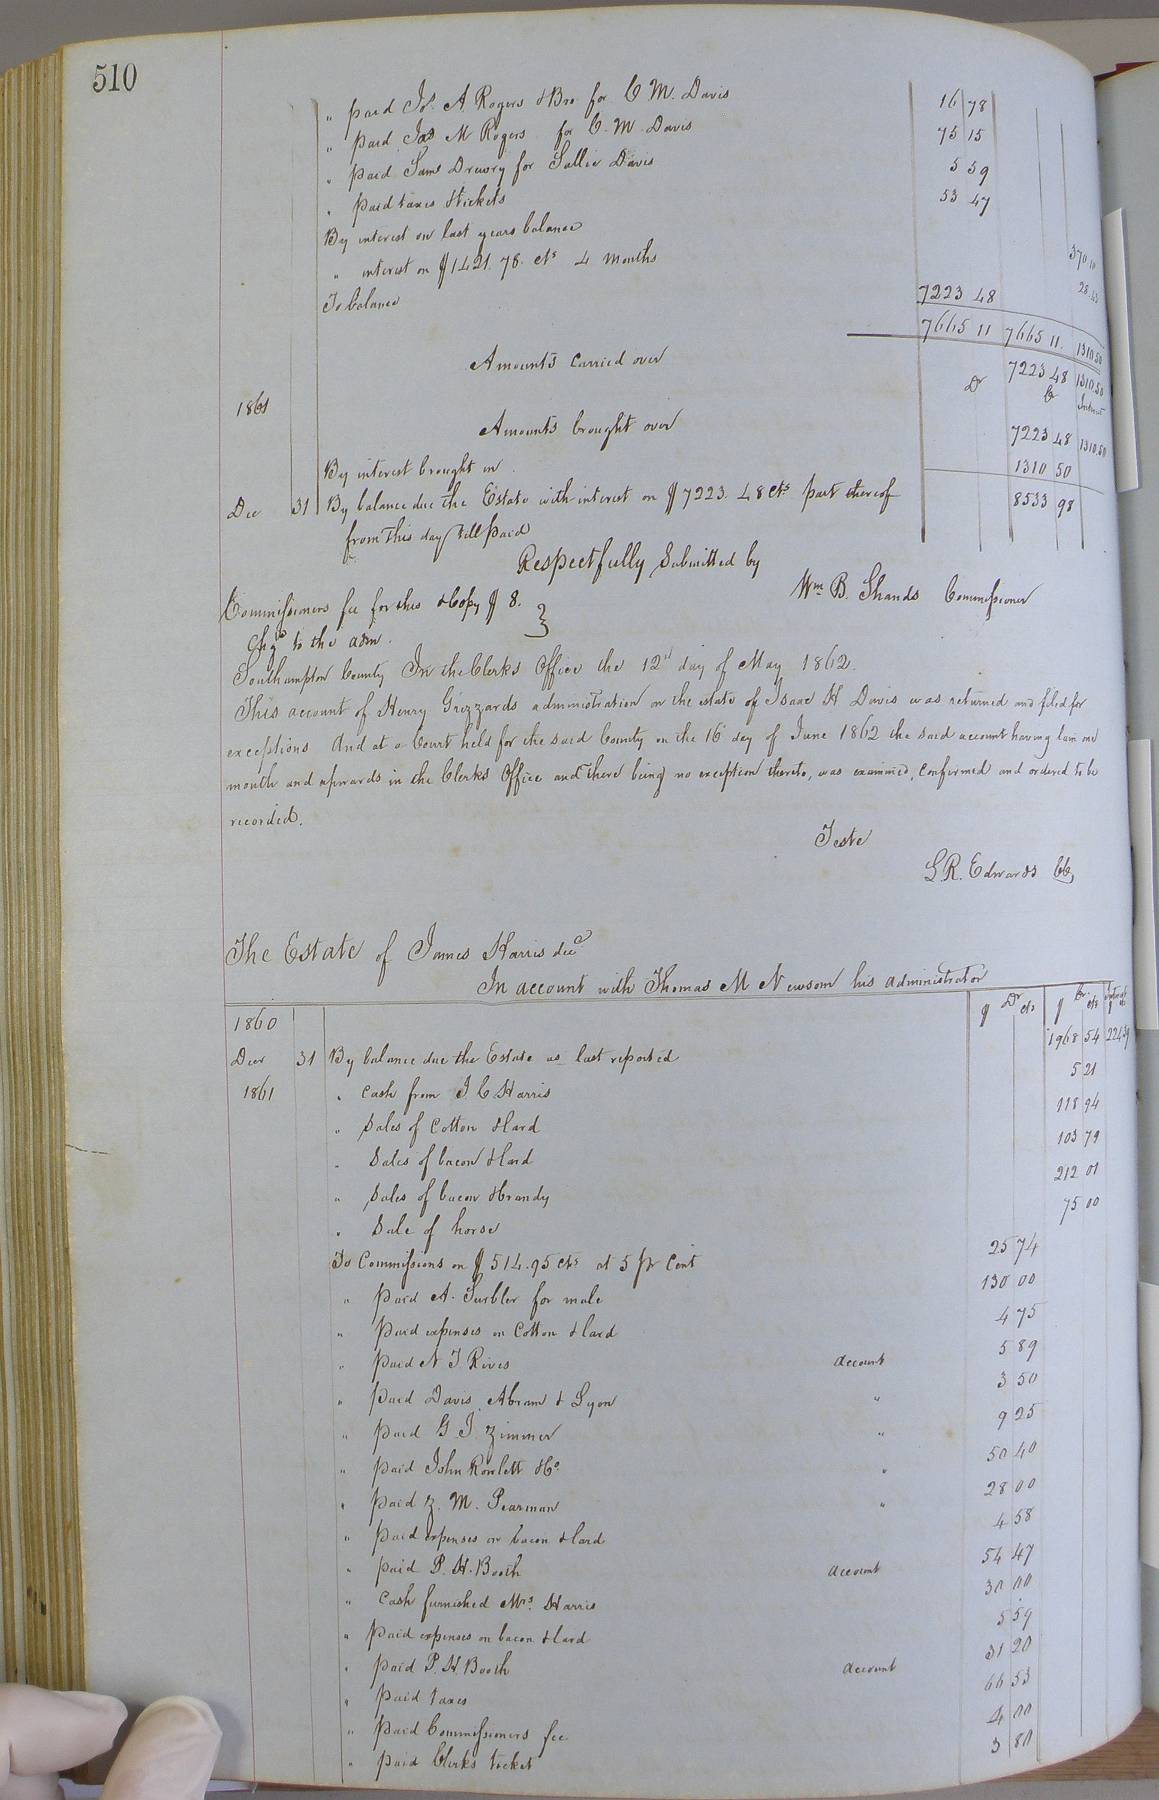 510
" paid Jos A Rogers & Bro for C M. Davis 16 78
" paid Jas M Rogers for C. M. Davis 75 15
" paid Saml Drewry for Sallie Davis 5 59
" paid taxes & tickets 53 47
By interest on last years balance 370 10
" interest on $1421.78. cts 4 months 28.43
To balance 7223 48
7665 11 7665 11. 1310.50
Amounts carried over 7223 48 1310.50
1861 Dr Cr Interest
Amounts brought over 7223 48 1310.50
By interest brought in 1310 50
Dec 31 By balance due the Estate with interest on $7223.48 cts part thereof 8533 98
from this day till paid
Respectfully Submitted by
Wm B. Shands Commissioner
Commissioners fee for this & Copy $8. }
Chgd to the adm.
Southampton County In the Clerks Office the 12th day of May 1862.
This account of Henry Grizzards administration on the estate of Isaac H Davis was returned and filed for
exceptions And at a Court held for the said County on the 16 day of June 1862 the said account having lain one
month and upwards in the Clerks Office and there being no exception thereto, was examined, confirmed and ordered to be
recorded.
Teste
L R. Edwards CC,
The Estate of James Harris decd
In account with Thomas M Newsom his administrator
1860 $ Dr cts $ Cr cts Interest $ cts
Decr 31 By balance due the Estate as last reported 1968 54 224.39
1861 " cash from J C Harris 5 21
" Sales of Cotton & lard 118 94
" Sales of bacon & lard 103 79
" Sales of bacon & brandy 212 01
" Sale of horse 75 00
To Commissions on $514.95 cts at 5 pr Cent 25 74
" paid A. for mule 130 00
" paid expenses on Cotton & lard 4 75
" paid N T Rives account 5 89
" paid Davis, Abram & Lyon " 3 50
" paid G. J. Zimmer " 9 25
" paid John Rowlett & Co " 50 40
" paid Z. M. Pearman " 28 00
" paid expenses on bacon & lard 4 58
" paid P. H. Booth account 54 47
" Cash furnished Mrs. Harris 30 00
" paid expenses on bacon & lard 5 59
" paid P. H. Booth account 31 20
" paid taxes 66 53
" paid Commissioners fee 4 00
" paid Clerks ticket 3 80